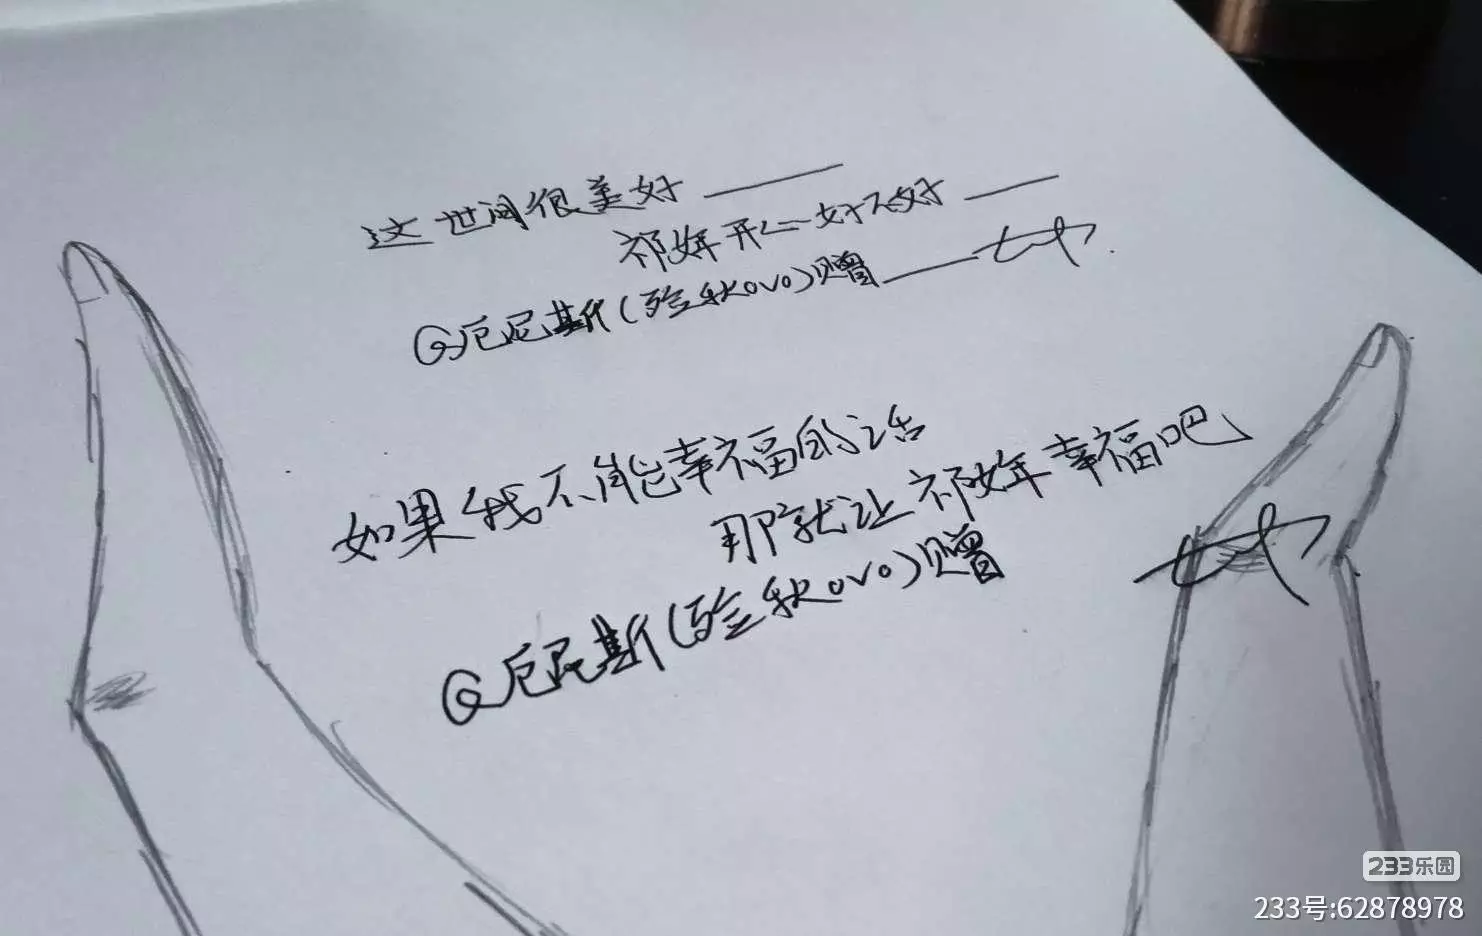 这世间很美好——
祁年开心好不好——
@厄尼斯(  秋ovo)赠——
如果我不能幸福的话
那就让祁年幸福吧
@厄尼斯(  秋ovo)赠
233乐园
233号:62878978